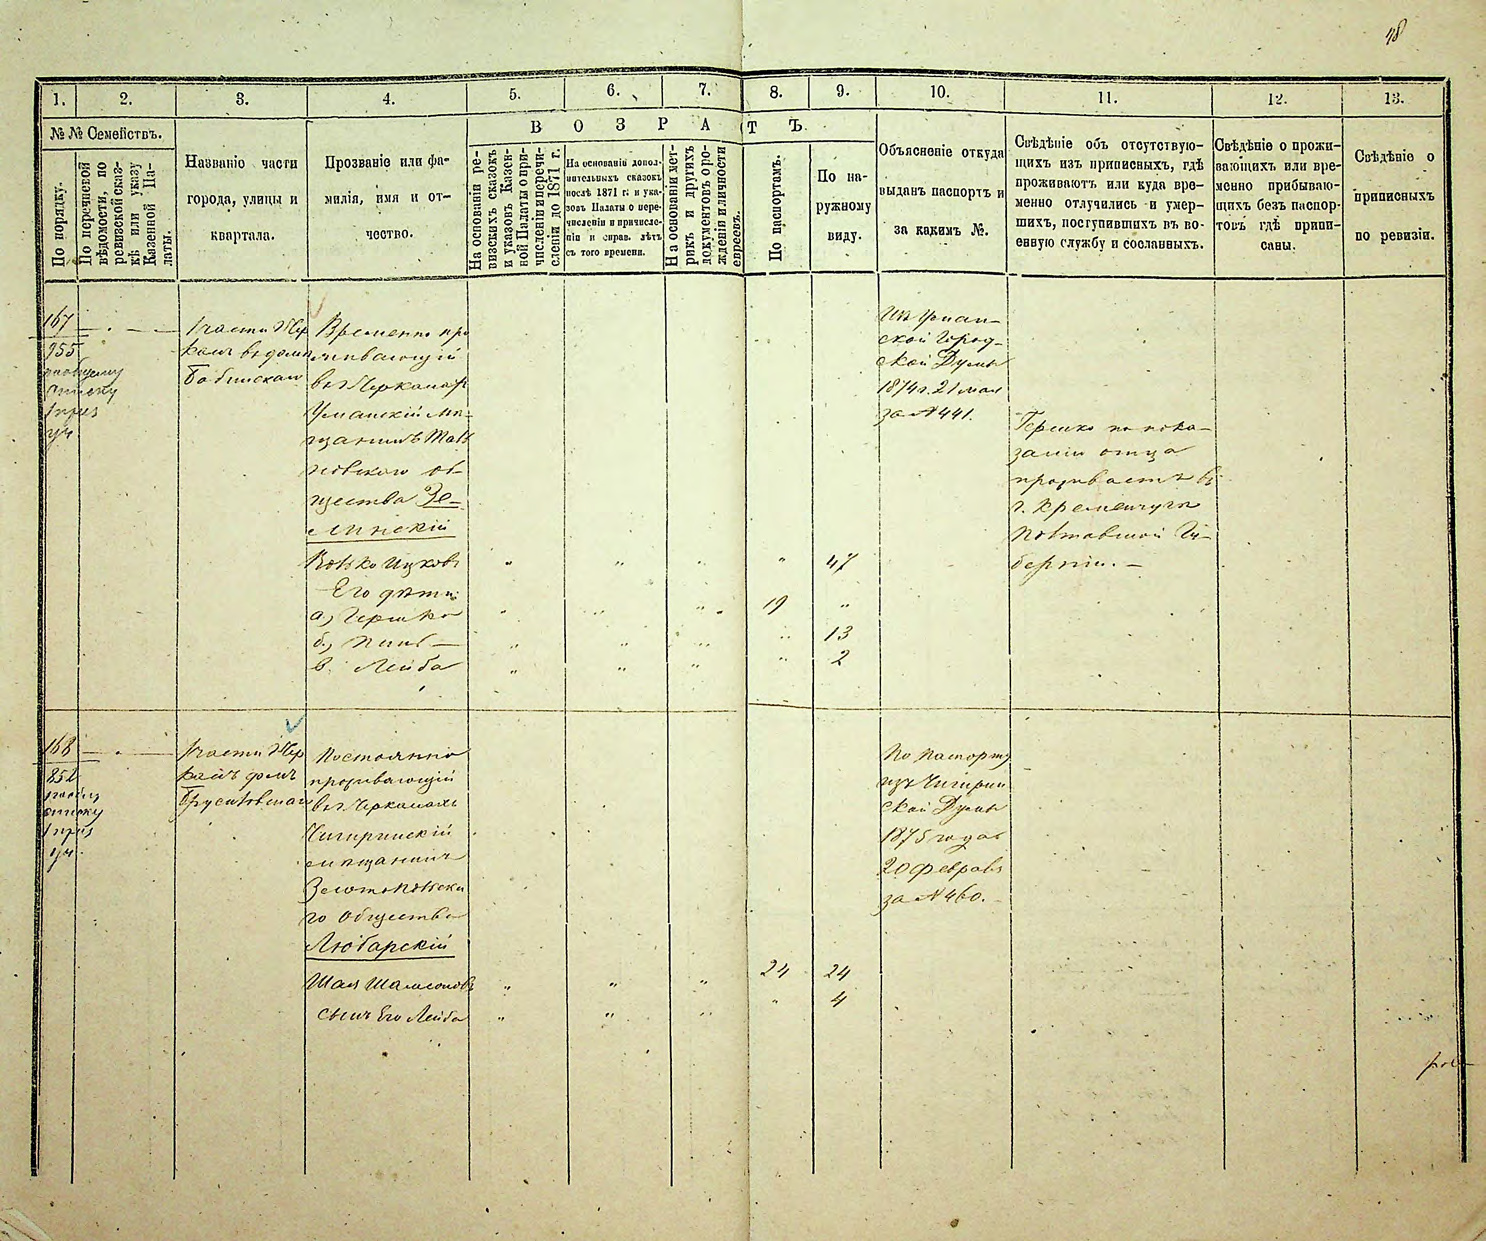 48
1. 2. 3. 4. 5. 6. 7. 8. 9. 10. 11. 12. 13.
№ № Семействъ.
По порядку.
По перечневой
вѣдомости, по
ревизской сказ-
кѣ или указу
Казенной Па-
латы.
Названіе части
города, улицы и
квартала.
Прозваніе или фа-
милія, имя и от-
чество.
ВОЗРАСТЪ
На основаніи ре-
визскихъ сказокъ
и указовъ Казен-
ной Палаты о при-
численіи и перечи-
сленіи до 1871 г.
На основаніи допол-
нительныхъ сказокъ
послѣ 1871 г. и ука-
зовъ Палаты о пере-
численіи и причисле-
ніи и справ. лѣтъ
съ того времени.
На основаніи мет-
рикъ и другихъ
документовъ о ро-
жденіи и личности
евреевъ.
По паспортамъ.
По на-
ружному
виду.
Объясненіе откуда
выданъ паспортъ и
за какимъ №.
Свѣдѣніе объ отсутствую-
щихъ изъ приписныхъ, гдѣ
проживаютъ или куда вре-
менно отлучились и умер-
шихъ, поступившихъ въ во-
енную службу и сосланныхъ.
Свѣдѣніе о прожи-
вающихъ или вре-
менно прибываю-
щихъ безъ паспор-
товъ гдѣ припи-
саны.
Свѣдѣніе о
приписныхъ
по ревизіи.
167
955
списку
1 приз
уч
1 части Чер
Бабинскаго
Временно про
живающій
въ г. Черкасах
Уманскій мѣ-
щанинъ
общества Зе-
линскій
Ицковъ
Его дѣти:
а) Гершко
б) Пинь
в. Лейба
47
19
13
2
Из Уман-
ской Город-
ской Думы
1874 г. 21 мая
за № 441.
Гершко по пока-
занію отца
проживаетъ въ
г. Кременчугѣ
Полтавской Гу-
берніи.
168
852
списку
1 приз
уч.
1 части Чер
домъ
Постоянно
проживающій
въ г. Черкасахъ
Чигиринскій
мѣщанинъ
Златопольска
го общества
Любарскій
Шая Шамсоновъ
сынъ Его Лейба
24 24
4
По паспорту
изъ Чигирин
ской Думы
1875 года
20 февраля
за № 460.